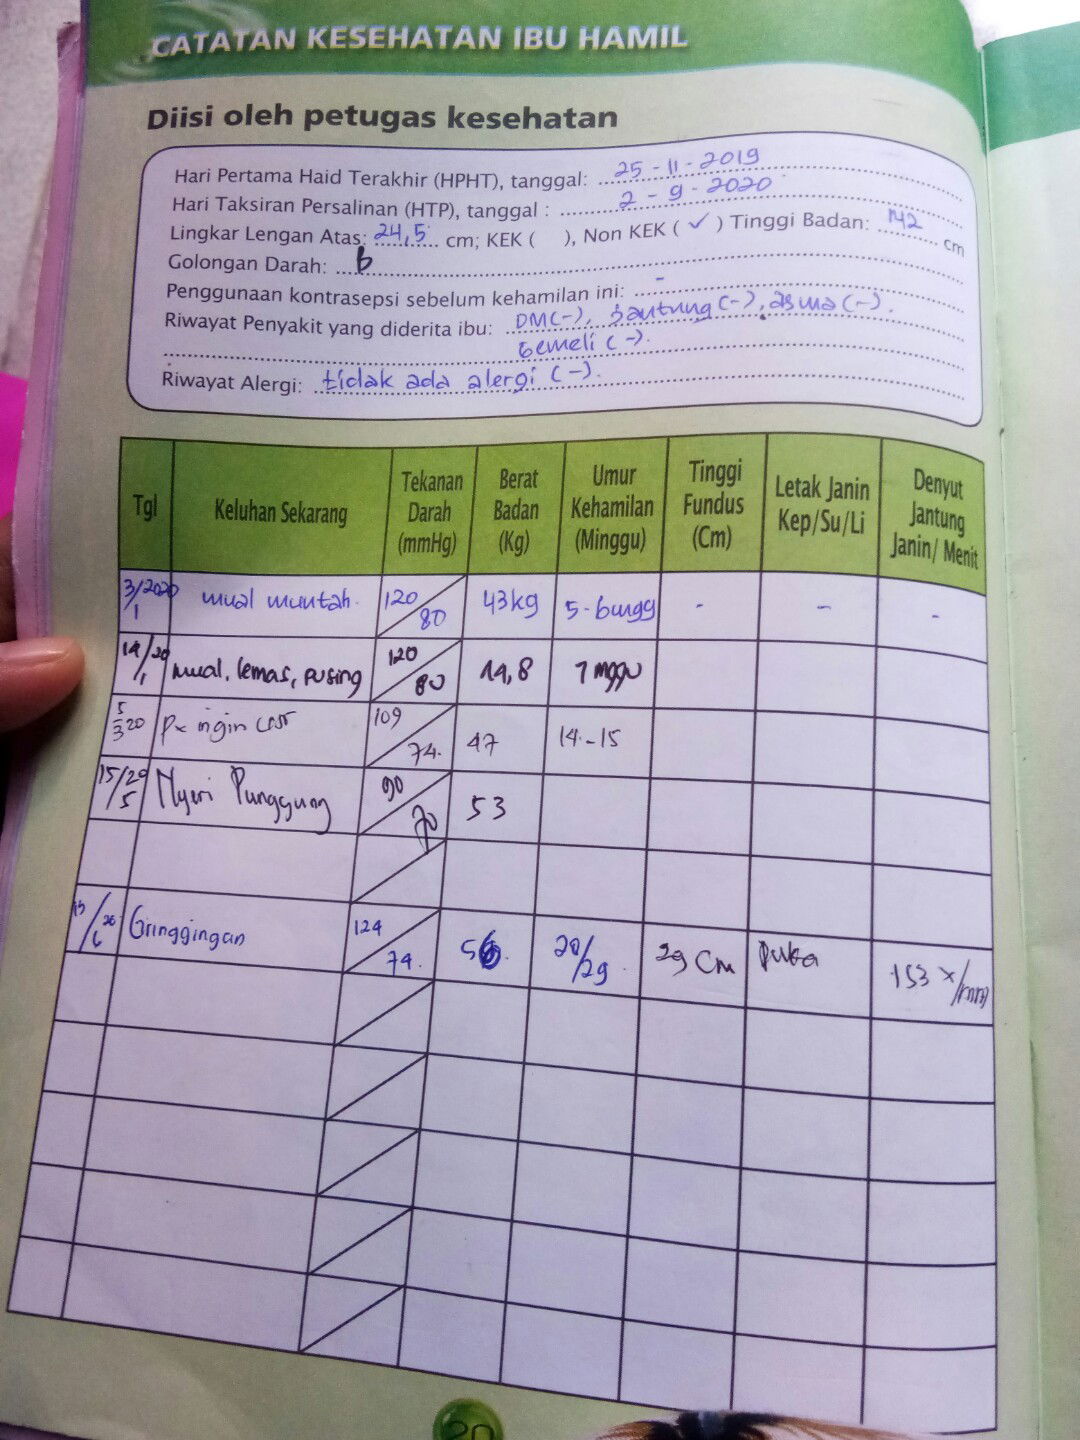 CATATAN KESEHATAN IBU HAMIL
Diisi oleh petugas kesehatan
Hari Pertama Haid Terakhir (HPHT), tanggal: 25-11-2019
Hari Taksiran Persalinan (HTP), tanggal : 2-9-2020
Lingkar Lengan Atas: 24,5 cm; KEK ( ), Non KEK ( ✓ ) Tinggi Badan: 142 cm
Golongan Darah: b
Penggunaan kontrasepsi sebelum kehamilan ini: -
Riwayat Penyakit yang diderita ibu: DM(-), Jantung (-), asma (-).
Gemeli (-).
Riwayat Alergi: tidak ada alergi (-).
Tgl Keluhan Sekarang Tekanan Darah (mmHg) Berat Badan (Kg) Umur Kehamilan (Minggu) Tinggi Fundus (Cm) Letak Janin Kep/Su/Li Denyut Jantung Janin/ Menit
3/2020 1 mual muntah. 120/80 43kg 5-6 - - -
14/20 1 mual, lemas, pusing 120/80 7 mggu
5/3 20 Px ingin 109/74. 47 14-15
15/20 5 Nyeri Punggung 90/70 53
6 Gringgingan 124/74. 29 Cm puka 153 x/
20